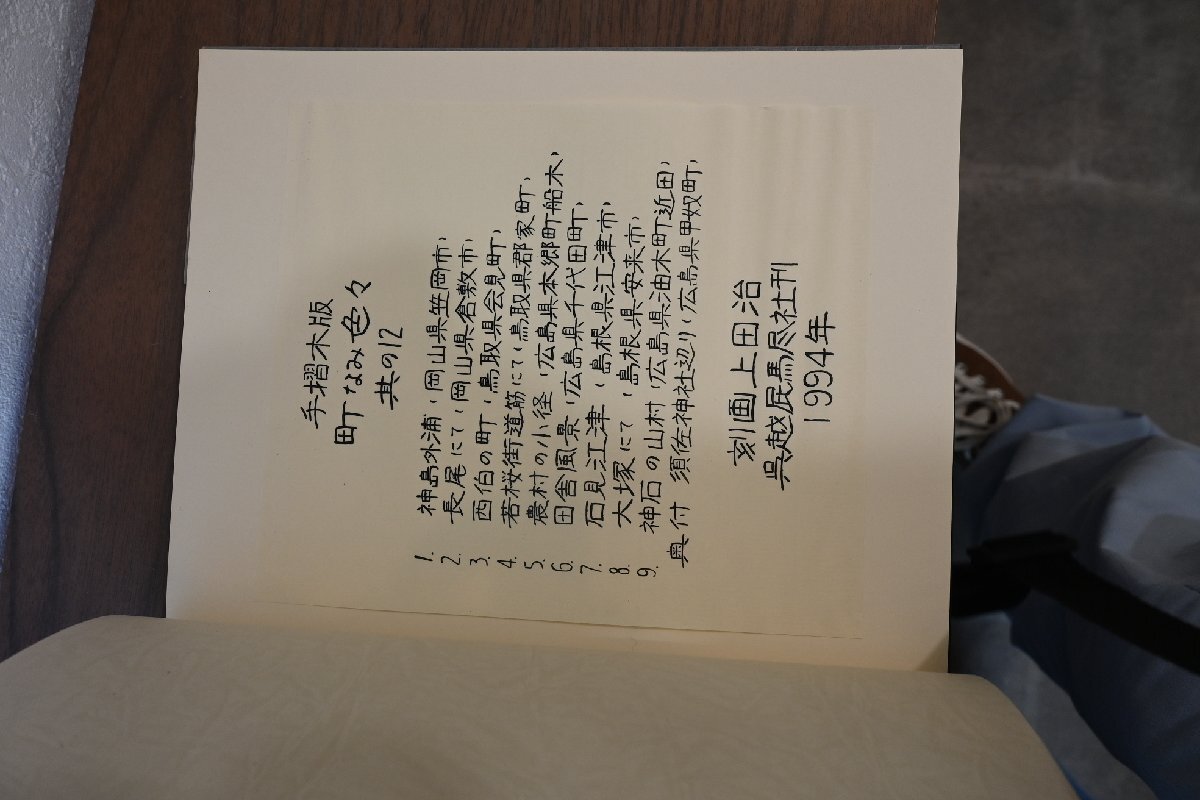 手摺木版
町なみ色々
其の12
1. 神島外浦(岡山県笠岡市)
2. 長尾にて(岡山県倉敷市)
3. 西伯の町(鳥取県会見町)
4. 若桜街道筋にて(鳥取県郡家町)
5. 農村の小径(広島県本郷町船木)
6. 田舎風景(広島県千代田町)
7. 石見江津(島根県江津市)
8. 大塚にて(島根県安来市)
9. 神石の山村(広島県油木町近田)
奥付 須佐神社辺り(広島県甲奴町)
刻画上田治
呉越屁馬尽社刊
1994年